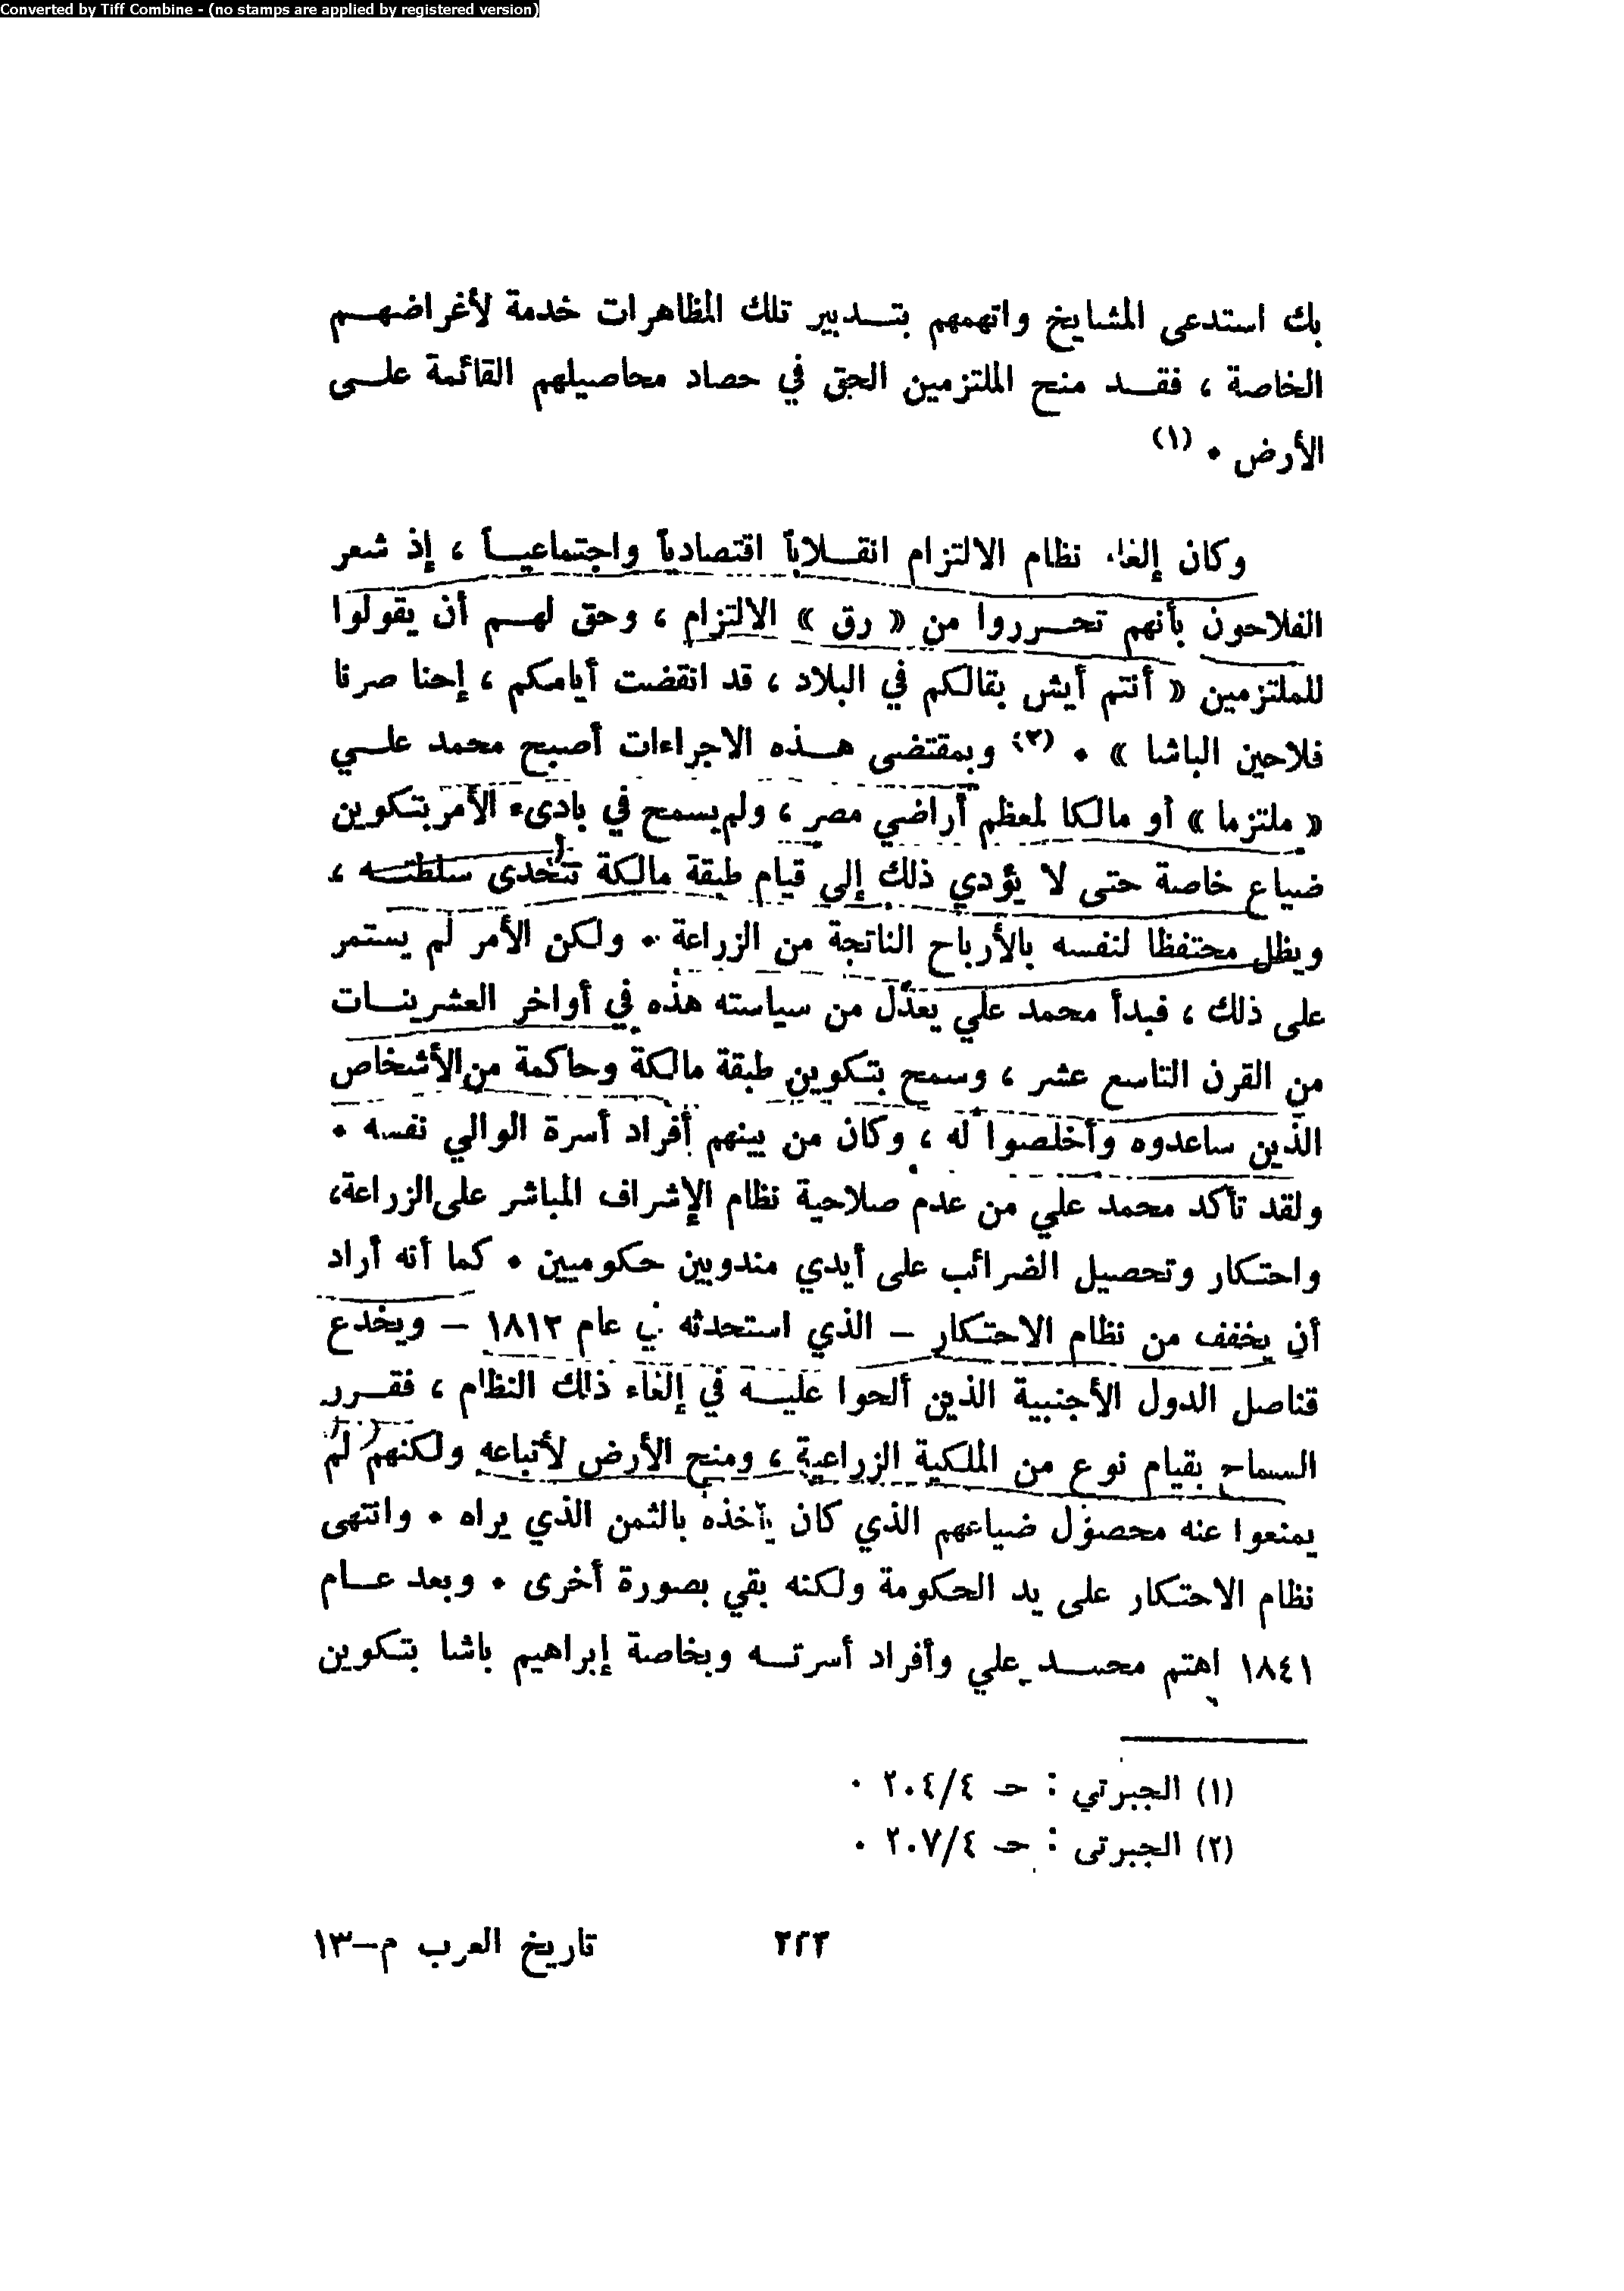 Converted by Tiff Combine - (no stamps are applied by registered version)
بك استدعى المشايخ واتهمهم بتدبير تلك المظاهرات خدمة لأغراضهم
الخاصة ، فقد منح الملتزمين الحق في حصاد محاصيلهم القائمة على
الأرض . (١)
وكان إلغاء نظام الالتزام انقلاباً اقتصادياً واجتماعياً ، إذ شعر
الفلاحون بأنهم تحرروا من « رق » الالتزام ، وحق لهم أن يقولوا
للملتزمين « أنتم أيش بقالكم في البلاد ، قد انقضت أيامكم ، إحنا صرنا
فلاحين الباشا » . (٢) وبمقتضى هذه الاجراءات أصبح محمد علي
« ملتزما » أو مالكا لمعظم أراضي مصر ، ولم يسمح في بادىء الأمر بتكوين
ضياع خاصة حتى لا يؤدي ذلك إلى قيام طبقة مالكة تتحدى سلطته ،
ويظل محتفظا لنفسه بالأرباح الناتجة من الزراعة . ولكن الأمر لم يستمر
على ذلك ، فبدأ محمد علي يعدّل من سياسته هذه في أواخر العشرينات
من القرن التاسع عشر ، وسمح بتكوين طبقة مالكة وحاكمة من الأشخاص
الذين ساعدوه وأخلصوا له ، وكان من بينهم أفراد أسرة الوالي نفسه .
ولقد تأكد محمد علي من عدم صلاحية نظام الإشراف المباشر على الزراعة،
واحتكار وتحصيل الضرائب على أيدي مندوبين حكوميين . كما أنه أراد
أن يخفف من نظام الاحتكار – الذي استحدثه في عام ١٨١٢ – ويخدع
قناصل الدول الأجنبية الذين ألحوا عليه في إلغاء ذلك النظام ، فقرر
السماح بقيام نوع من الملكية الزراعية ، ومنح الأرض لأتباعه ولكنهم لم
يمنعوا عنه محصول ضياعهم الذي كان يأخذه بالثمن الذي يراه . وانتهى
نظام الاحتكار على يد الحكومة ولكنه بقي بصورة أخرى . وبعد عام
١٨٤١ اهتم محمد علي وأفراد أسرته وبخاصة إبراهيم باشا بتكوين
(١) الجبرتي : حـ ٢٠٤/٤ .
(٢) الجبرتى : حـ ٢٠٧/٤ .
٢٢٣
تاريخ العرب م–١٣